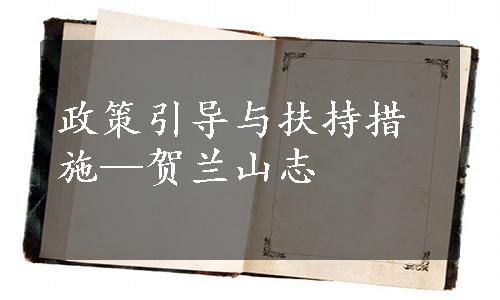 政策引导与扶持措
施—贺兰山志